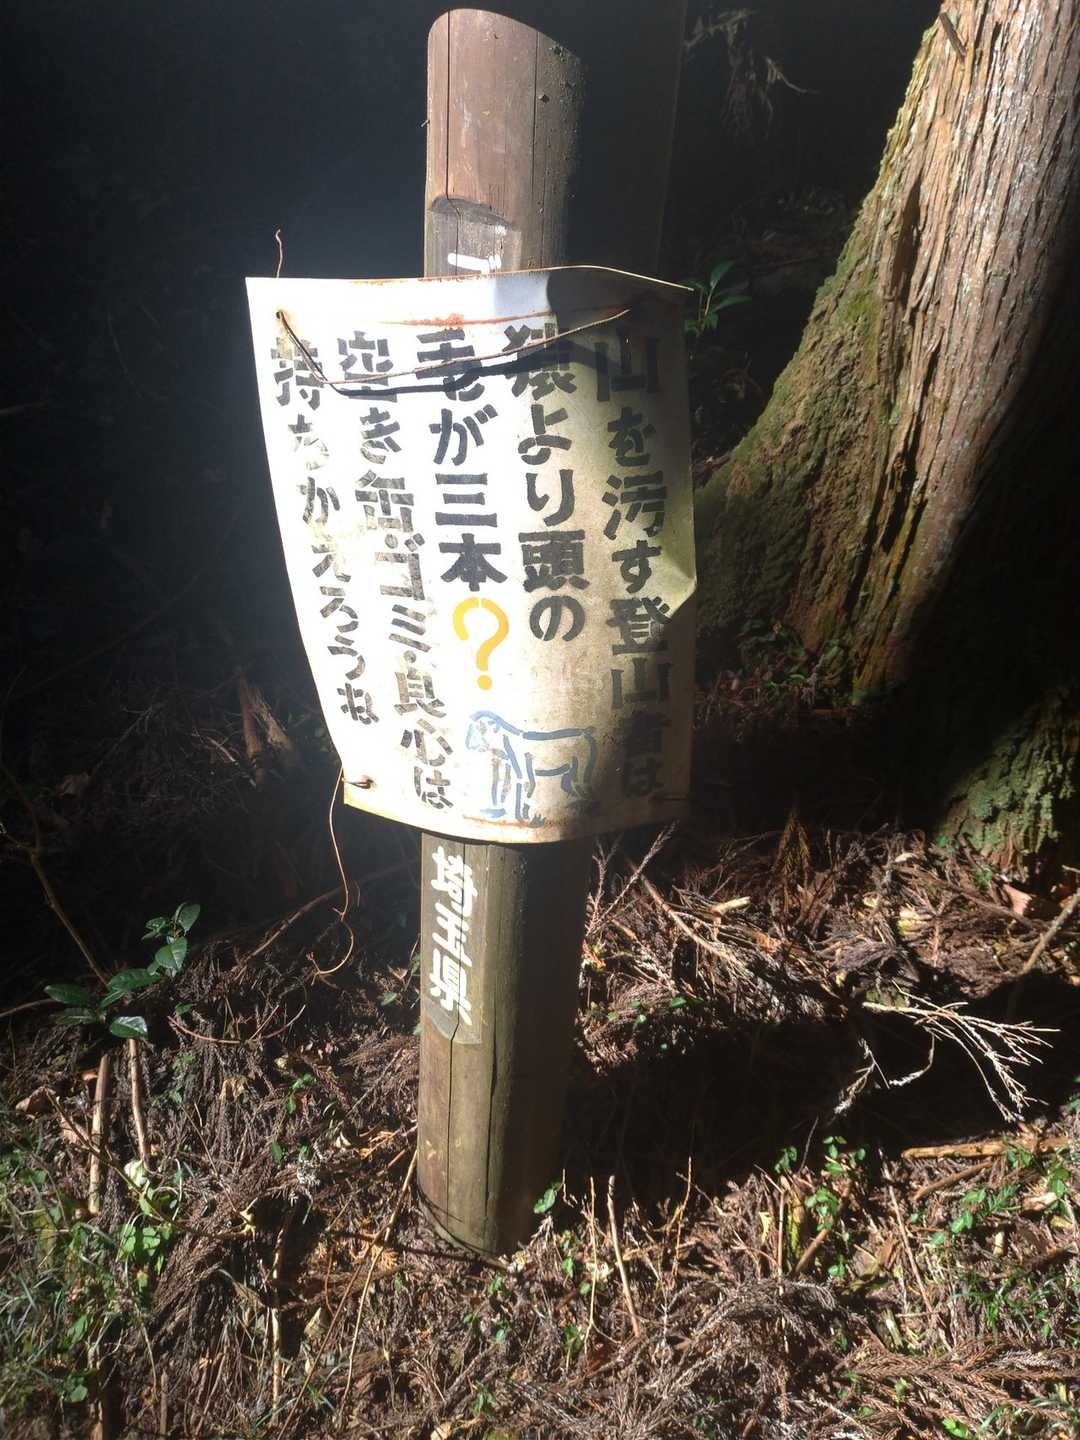 山を汚す登山者は
猿より頭の
毛が三本?
空き缶・ゴミ・良心は
持ちかえろうね
埼玉県